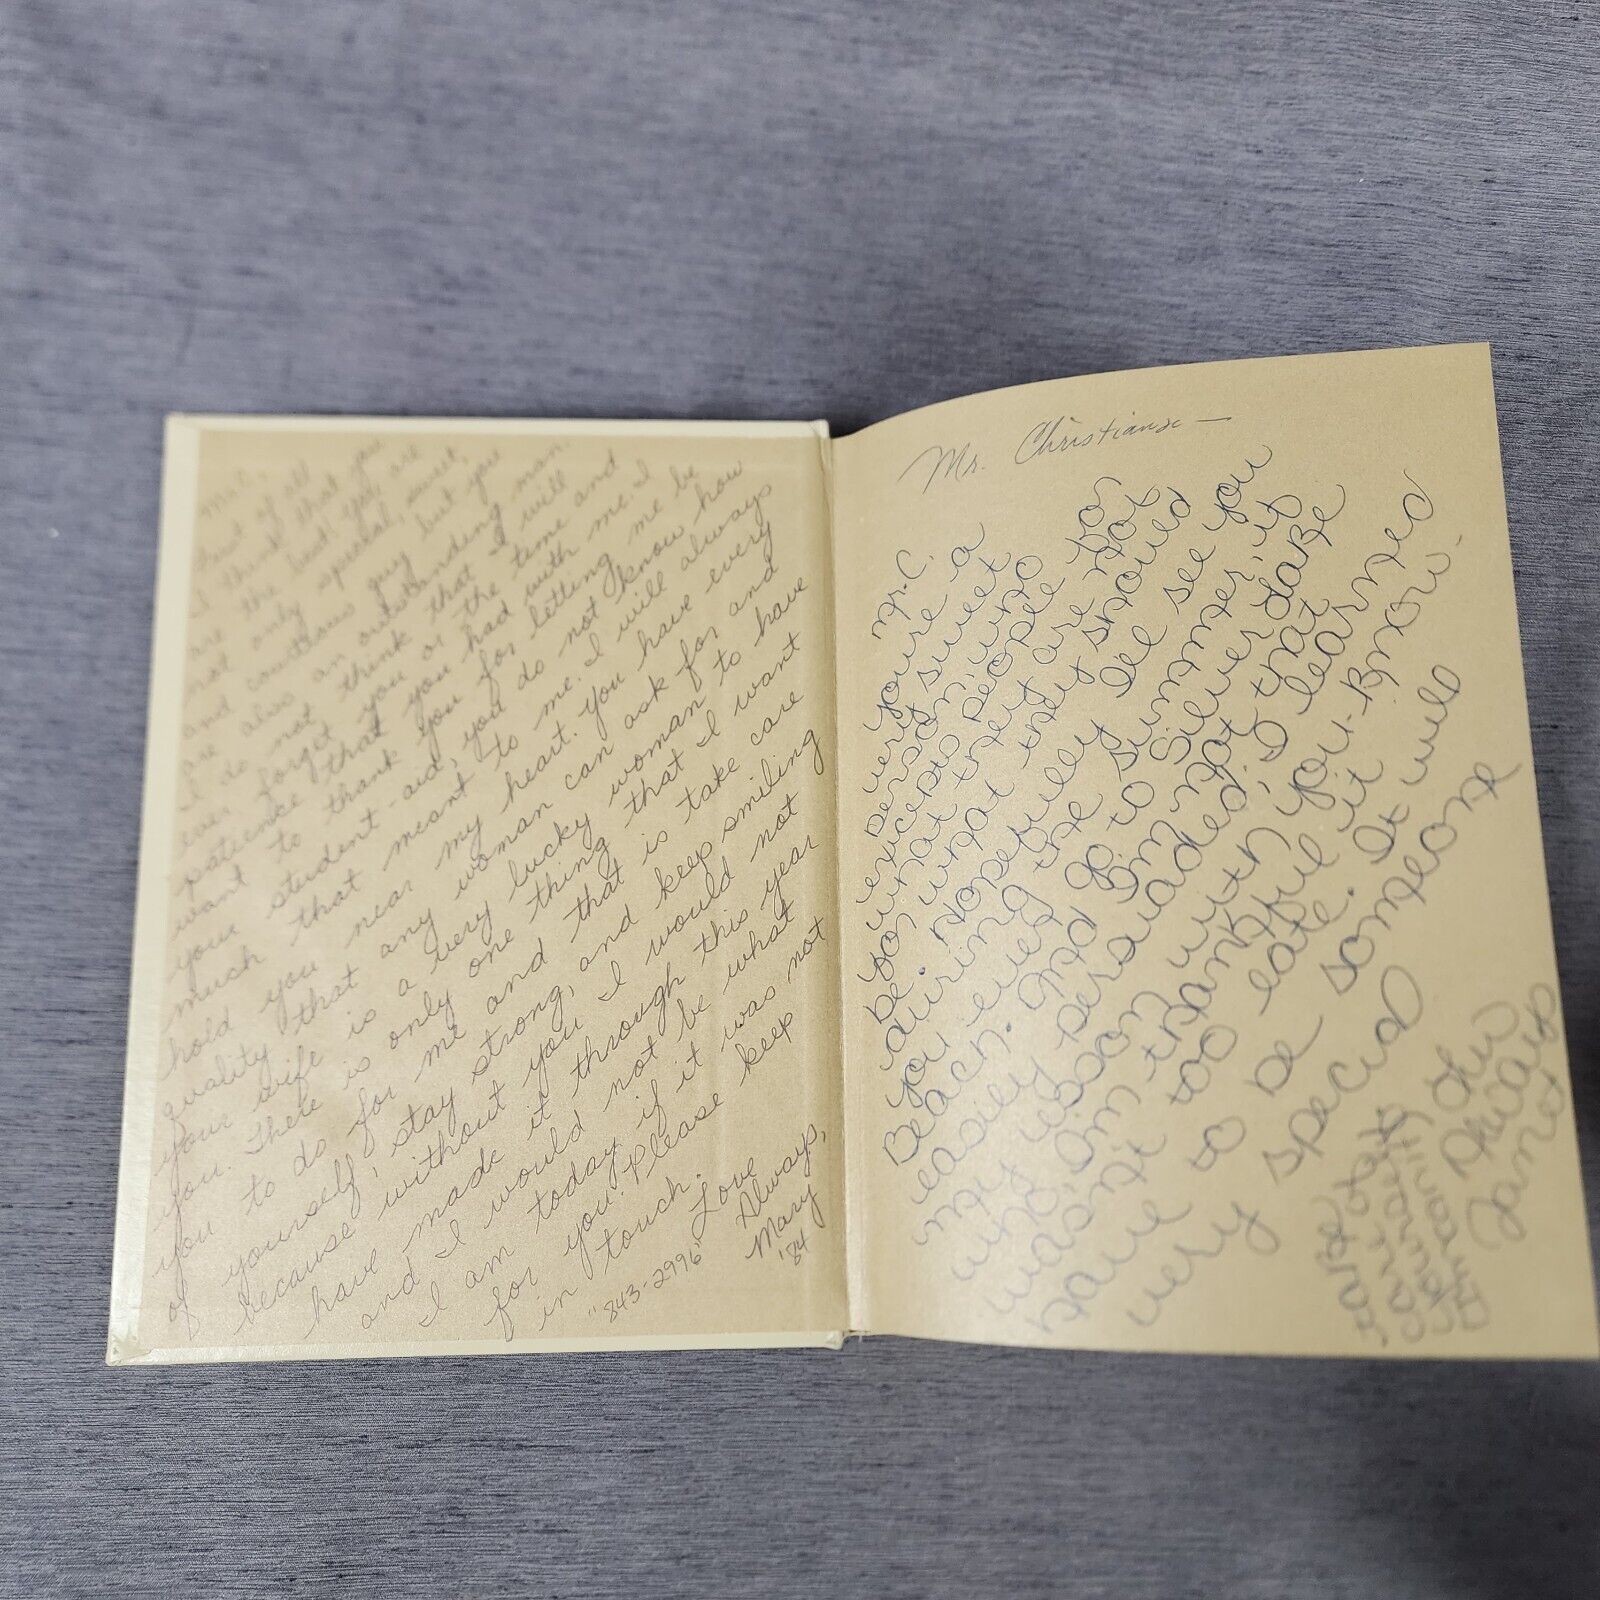 Mr. C,
First of all
I think that you
are the best. You are
not only special, sweet,
and courtious guy but you
are also an outstanding man.
I do not think that I will
ever forget you or the time and
patience that you had with me. I
want to thank you for letting me be
your student-aid, you do not know how
much that meant to me. I will always
hold you near my heart. You have every
quality that any woman can ask for and
your wife is a very lucky woman to have
you. There is only one thing that I want
you to do for me and that is take care
of yourself, stay strong, and keep smiling
because without you I would not
have made it through this year
and I would not be what
I am today if it was not
for you. Please keep
in touch.
"843-2996"
Love
Always,
Mary
'84
Mr. Christianse
Mr. C.
You're a
very sweet
person, who
excepts people for
what they are not
for what they should
be. Hopefully I'll see you
during the summer, if
you ever go to Silver Lake
Beach. And I'm not that
easily persuaded, I learned
my lesson with you-know-
who. Am thankful it
wasn't too late. It will
have to be someone
very special
Luv
Always
Janet